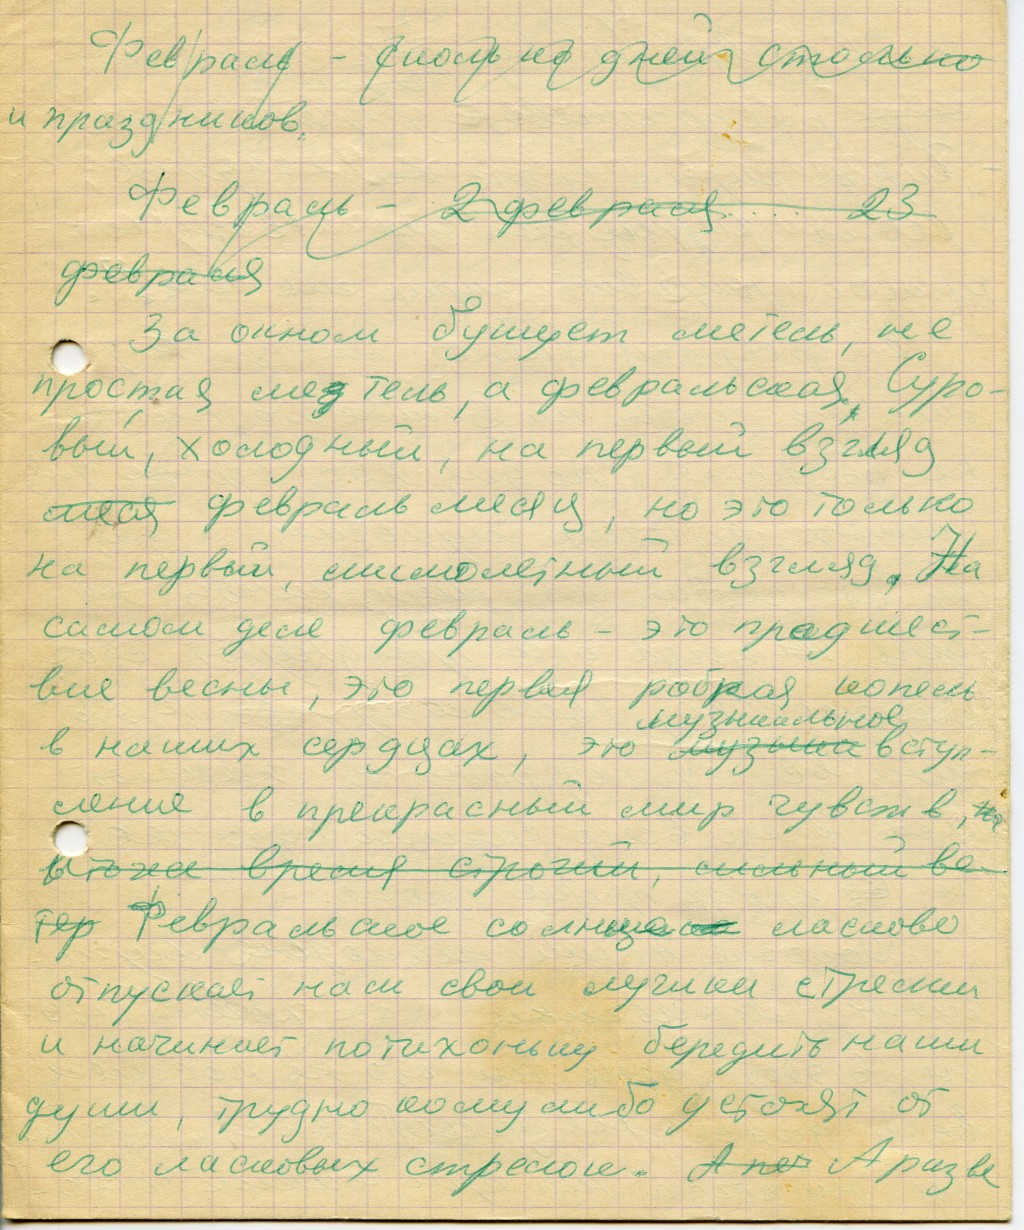 Февраль - сколько дней столько
и праздников.
Февраль - 2 февраля .... 23
февраля
За окном бушует метель, не
простая метель, а февральская. Суро-
вый, холодный, на первый взгляд
меся февраль месяц, но это только
на первый, мимолетный взгляд. На
самом деле февраль - это предшест-
вие весны, это первая робкая копель
музыкальное
в наших сердцах, это музыка вступ-
ление в прекрасный мир чувств, но
в тоже время строгий, сильный ве-
тер Февральское солнце ласково
отпускает нам свои лучики стрелки
и начинает потихоньку бередить наши
души, трудно кому либо устоят от
его ласковых стрелок. А нет А разве